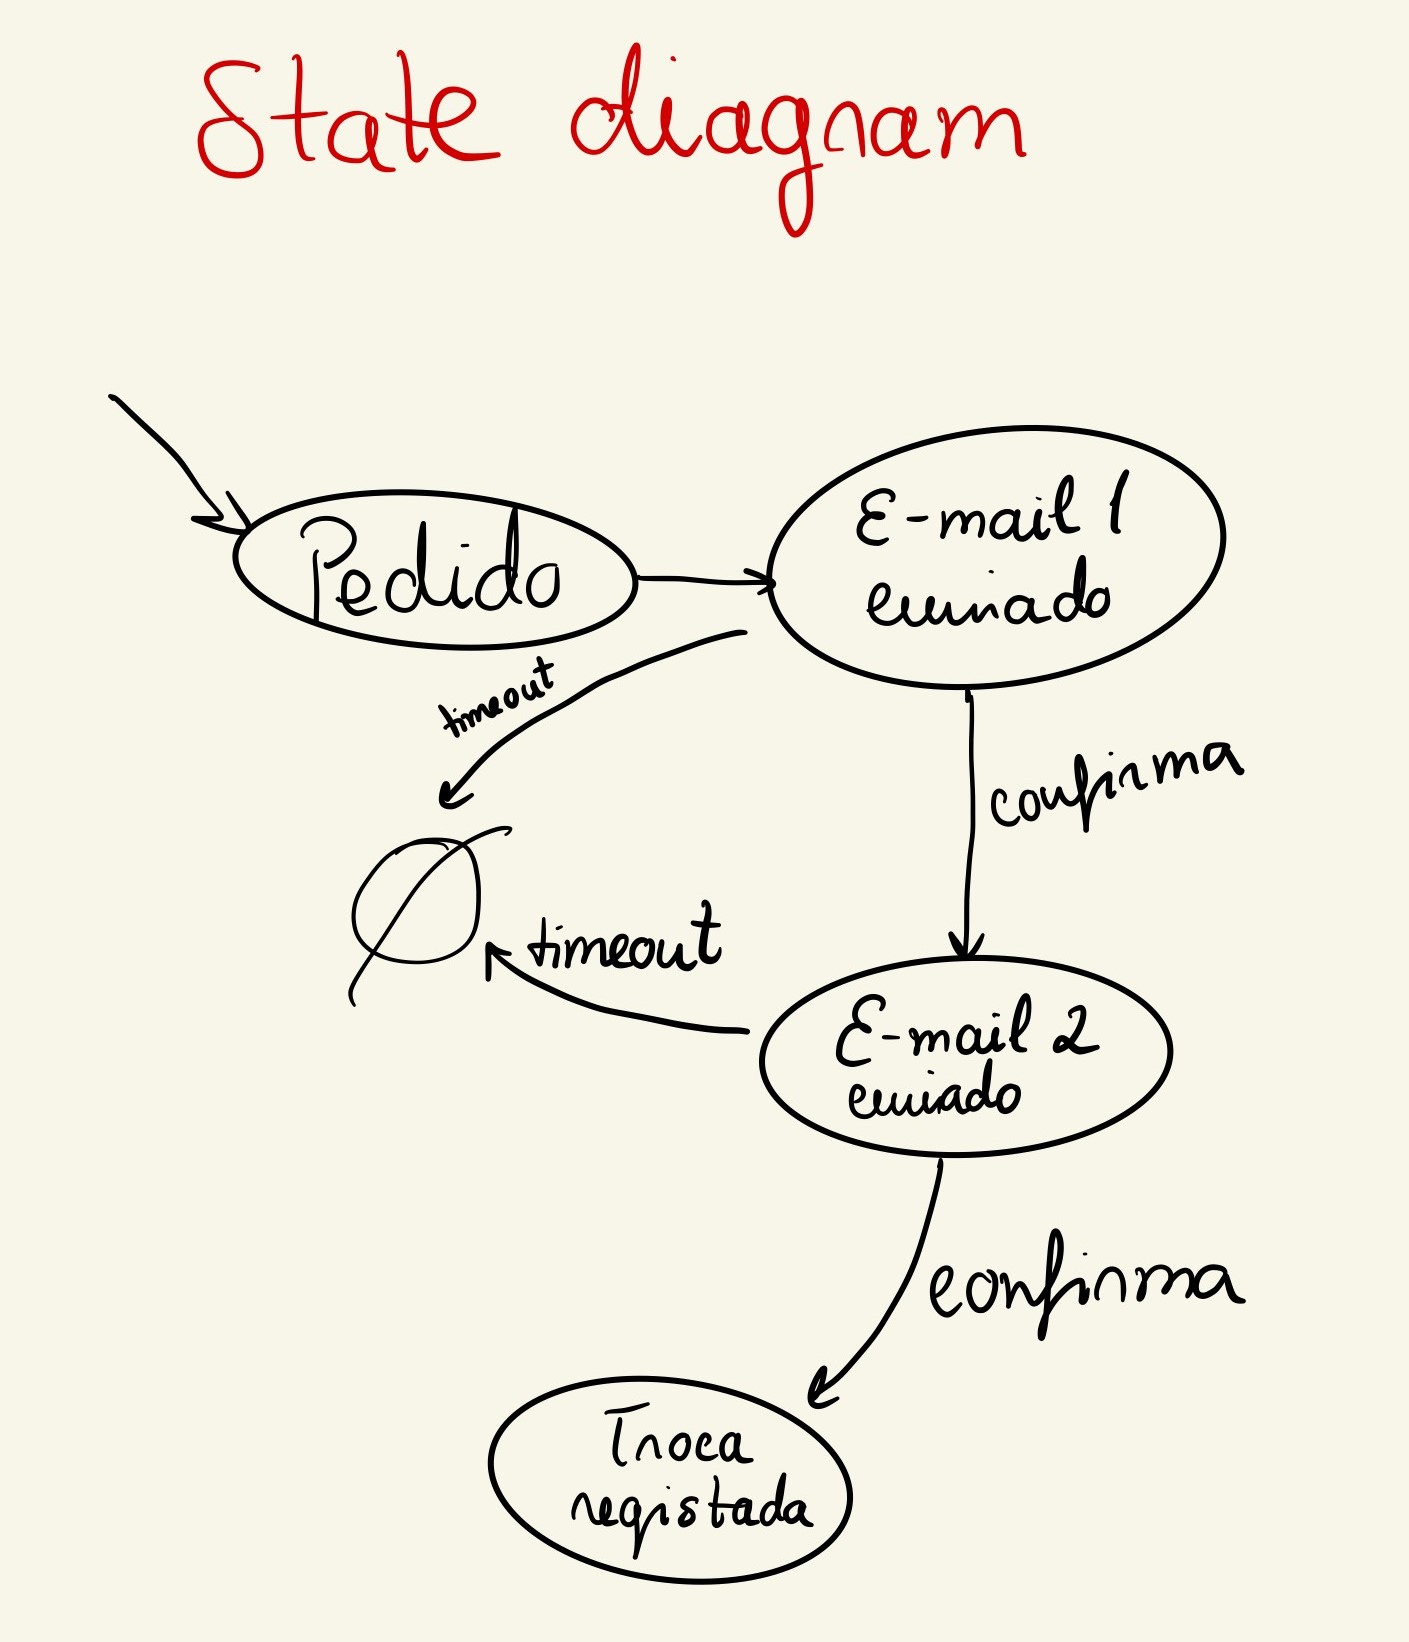 State diagram
Pedido
E-mail 1
enviado
timeout
confirma
Ø
timeout
E-mail 2
enviado
confirma
Troca
registada